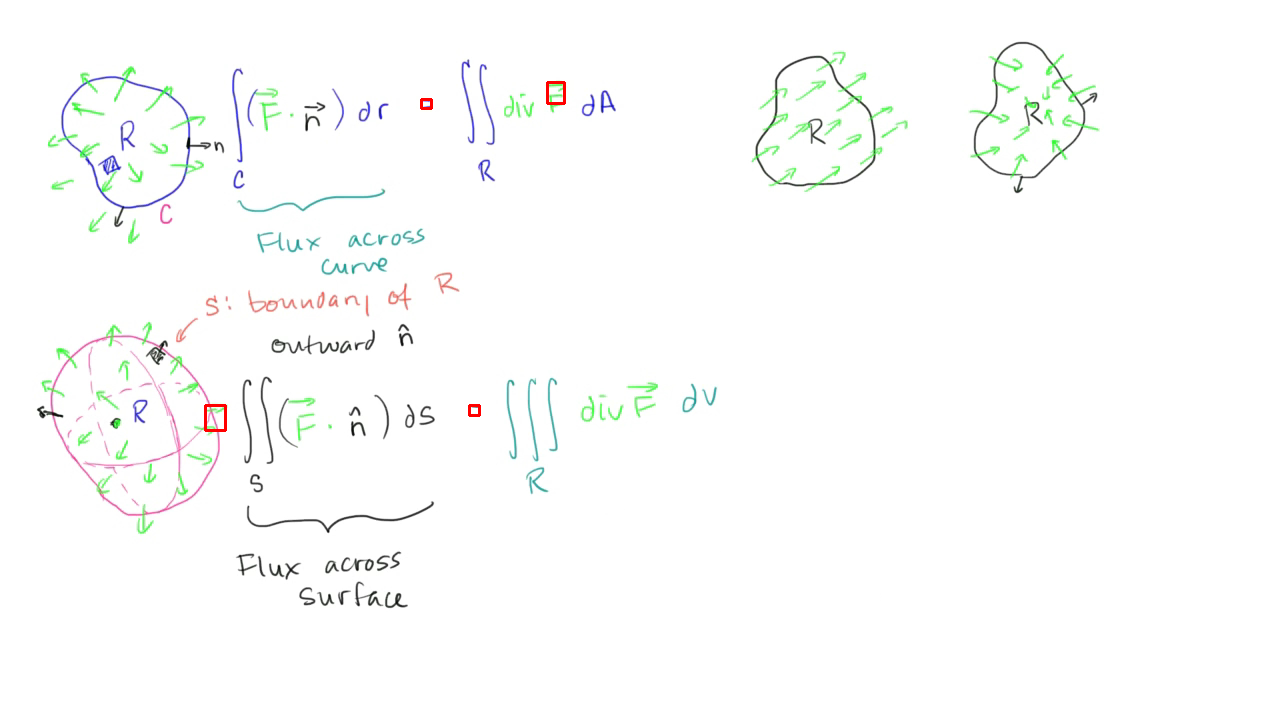 R n C
∫_C (F⃗ · n⃗) dr ∬_R div F⃗ dA
Flux across
curve
R
R
S: boundary of R
outward n̂
R
∬_S (F⃗ · n̂) dS ∭_R div F⃗ dV
Flux across
surface